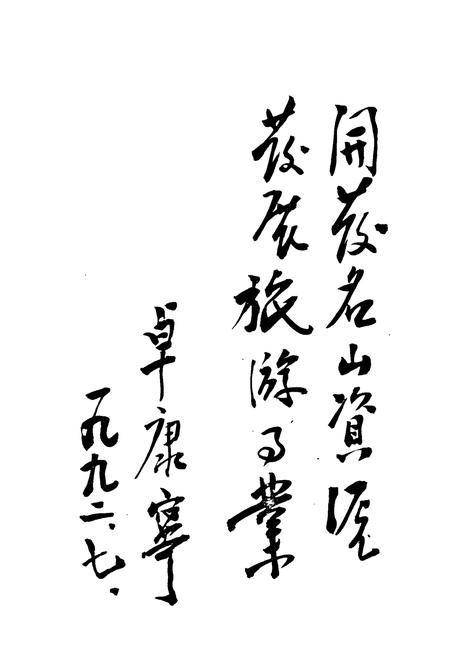 開發名山資源
發展旅游事業
卓康寧
一九九二、七、